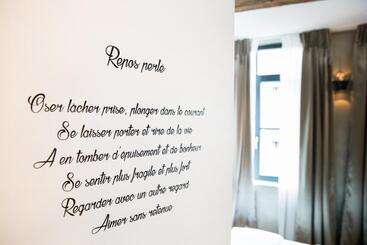 Repos perle
Oser lacher prise, plonger dans le courant
Se laisser porter et rire de la vie
A en tomber d'epuisement et de bonheur
Se sentir plus fragile et plus fort
Regarder avec un autre regard
Aimer sans retenue